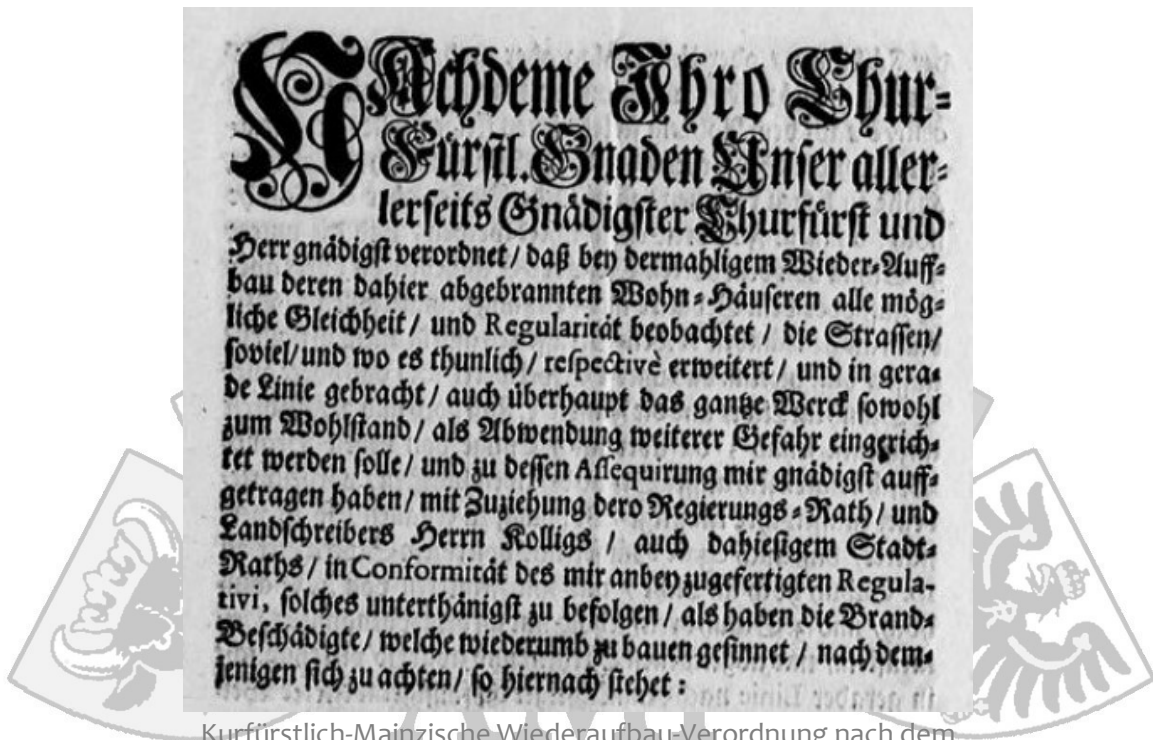 NAchdeme Ihro Chur-
Fürstl. Gnaden Unser aller-
lerseits Gnädigster Churfürst und
Herr gnädigst verordnet / daß bey dermahligem Wieder-Auff-
bau deren dahier abgebrannten Wohn-Häuseren alle mög-
liche Gleichheit / und Regularität beobachtet / die Strassen/
soviel/und wo es thunlich / respectivè erweitert / und in gera-
de Linie gebracht / auch überhaupt das gantze Werck sowohl
zum Wohlstand / als Abwendung weiterer Gefahr eingerich-
tet werden solle / und zu dessen Assequirung mir gnädigst auff-
getragen haben / mit Zuziehung dero Regierungs-Rath / und
Landschreibers Herrn Kolligs / auch dahiesigem Stadt-
Raths / in Conformität des mir anbey zugefertigten Regula-
tivi, solches unterthänigst zu befolgen / als haben die Brand-
Beschädigte / welche wiederumb zu bauen gesinnet / nach dem-
jenigen sich zu achten / so hiernach stehet :
Kurfürstlich-Mainzische Wiederaufbau-Verordnung nach dem